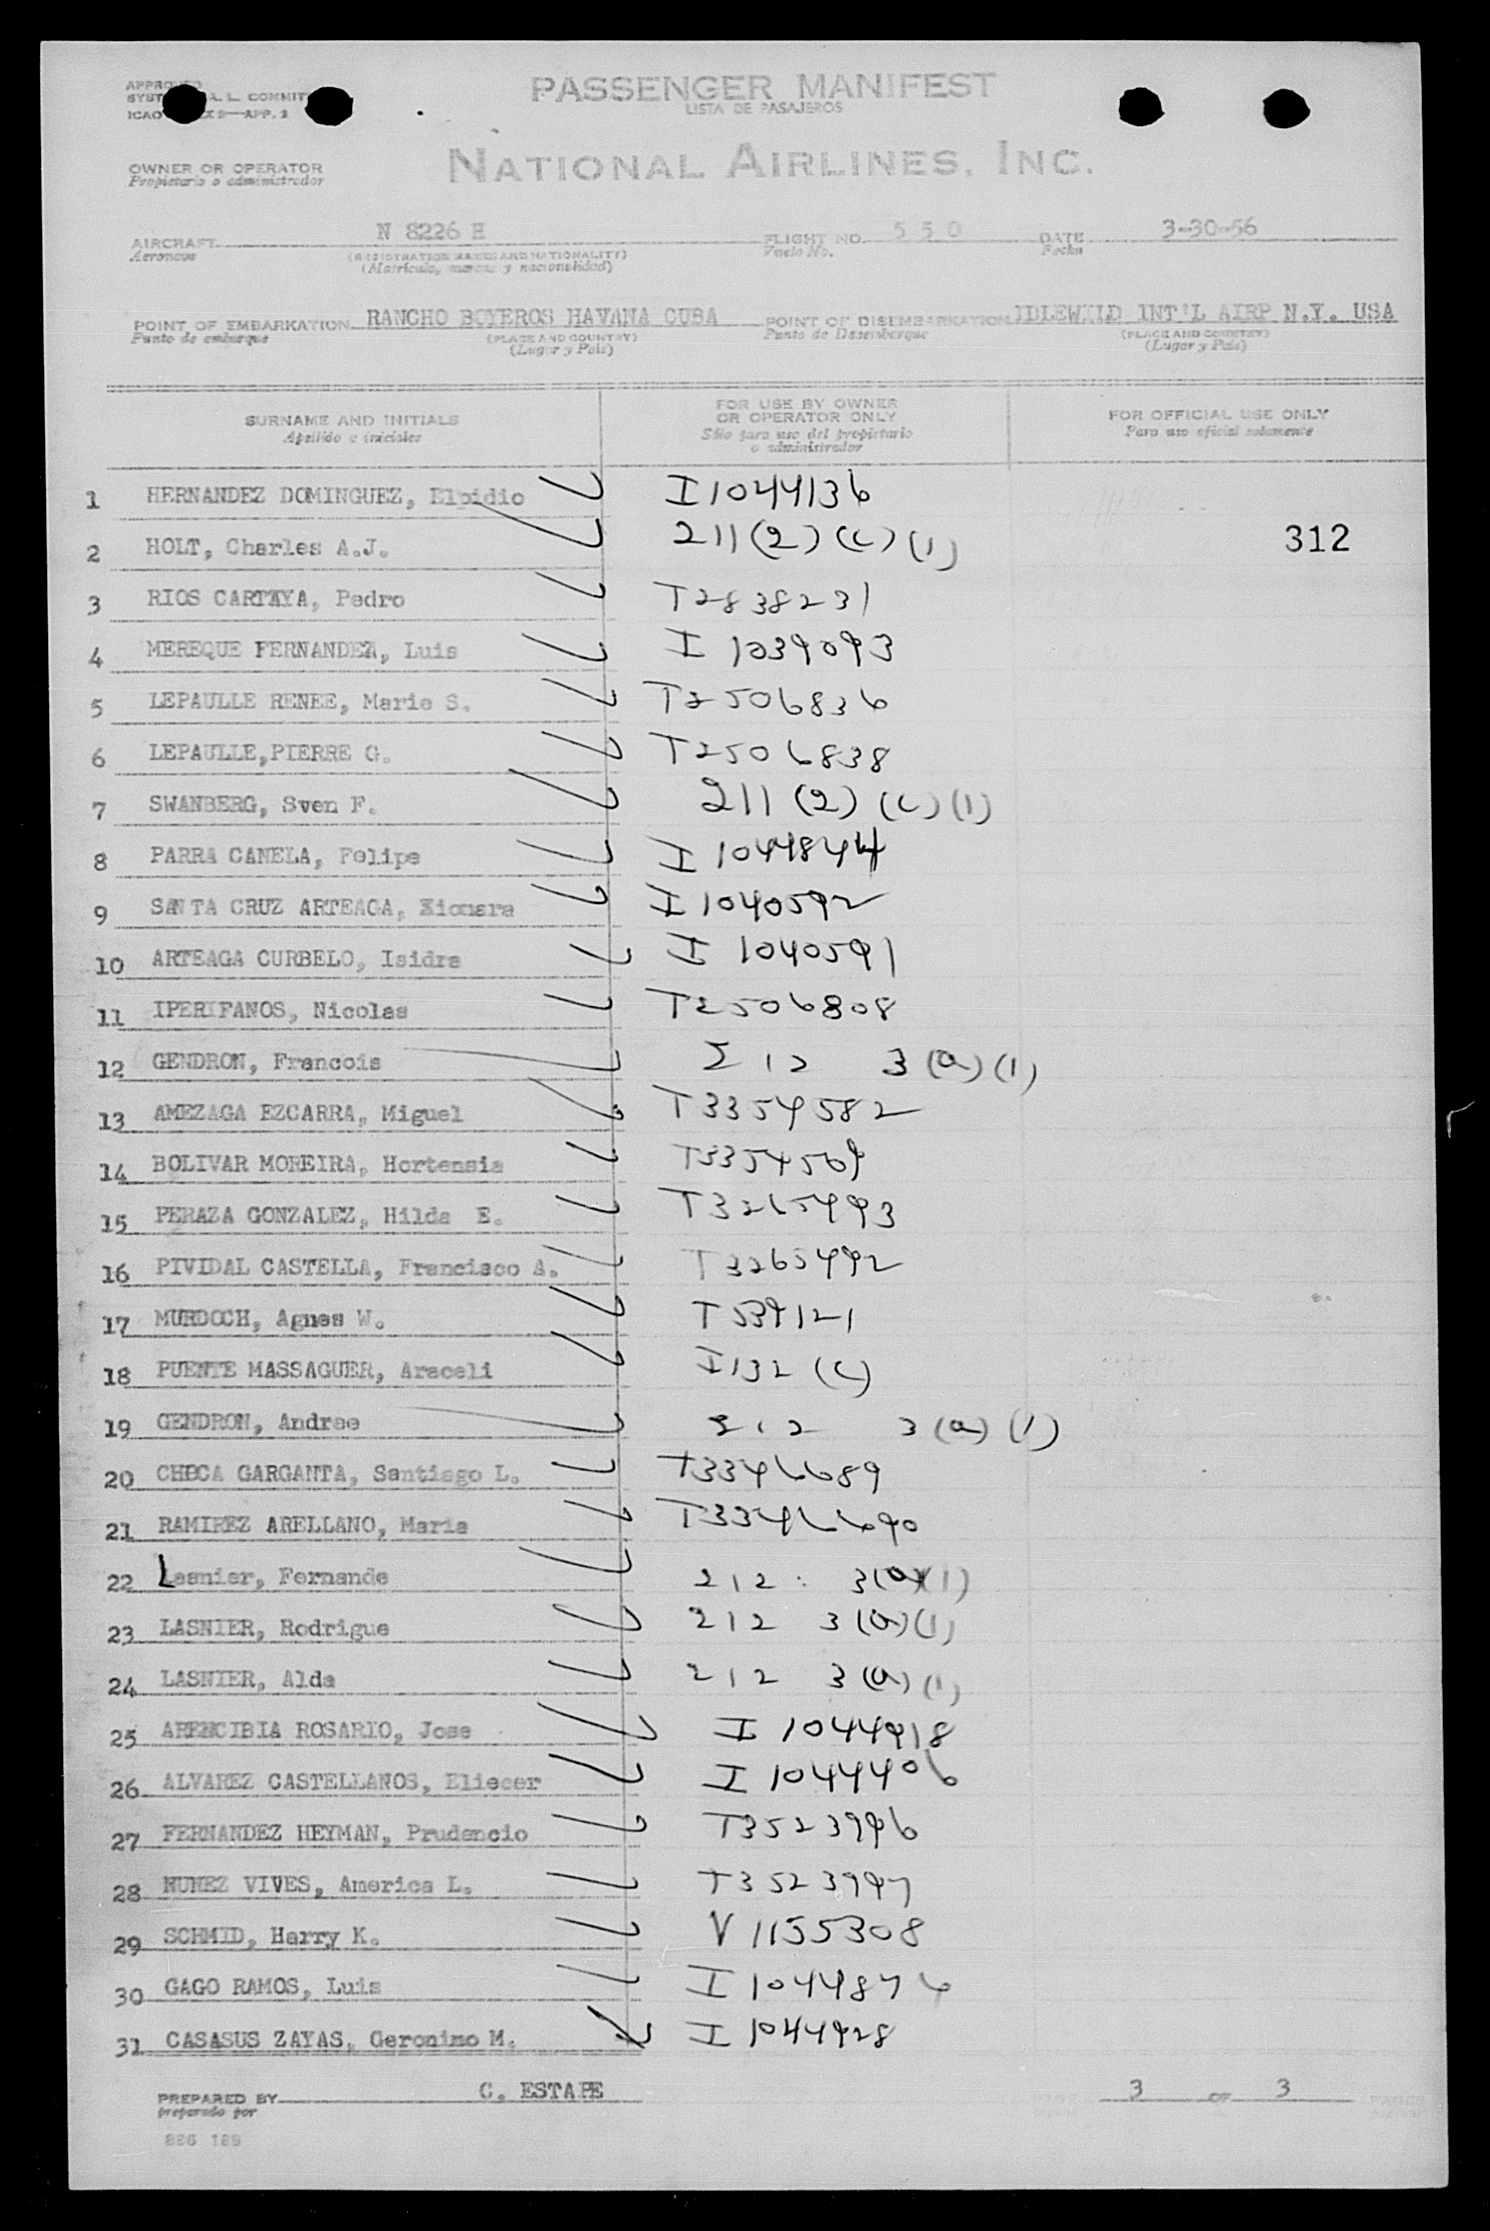 PASSENGER MANIFEST
LISTA DE PASAJEROS
ICAO
APP. 2
OWNER OR OPERATOR
Propietario o administrador
NATIONAL AIRLINES, INC.
AIRCRAFT N 8226 H FLIGHT NO. 5 5 0 DATE 3-30-56
Aeronave (REGISTRATION MARKS AND NATIONALITY) Vuelo No. Fecha
(Matricula, marcas y nacionalidad)
POINT OF EMBARKATION RANCHO BOYEROS HAVANA CUBA POINT OF DISEMBARKATION IDLEWILD INT'L AIRP N.Y. USA
Punto de embarque (PLACE AND COUNTRY) Punto de Desembarque (PLACE AND COUNTRY)
(Lugar y Pais) (Lugar y Pais)
SURNAME AND INITIALS FOR USE BY OWNER OR OPERATOR ONLY FOR OFFICIAL USE ONLY
Apellido e iniciales Sólo para uso del propietario o administrador Para uso oficial solamente
1 HERNANDEZ DOMINGUEZ, Elpidio I 1044136
2 HOLT, Charles A.J. 211 (2) (c) (1) 312
3 RIOS CARTAYA, Pedro T2838231
4 MEREQUE FERNANDEZ, Luis I 1039093
5 LEPAULLE RENEE, Marie S. T2506836
6 LEPAULLE,PIERRE G. T2506838
7 SWANBERG, Sven F. 211 (2) (c) (1)
8 PARRA CANELA, Felipe I 1044844
9 SANTA CRUZ ARTEAGA, Xiomara I 1040592
10 ARTEAGA CURBELO, Isidra I 1040591
11 IPERIFANOS, Nicolas T2506808
12 GENDRON, Francois 212 3 (a) (1)
13 AMEZAGA EZCARRA, Miguel T3354582
14 BOLIVAR MOREIRA, Hortensia T3354509
15 PERAZA GONZALEZ, Hilda E. T3265493
16 PIVIDAL CASTELLA, Francisco A. T3265492
17 MURDOCH, Agnes W. T539121
18 PUENTE MASSAGUER, Araceli I132 (c)
19 GENDRON, Andree 212 3 (a) (1)
20 CHECA GARGANTA, Santiago L. T3346689
21 RAMIREZ ARELLANO, Maria T3346690
22 Lasnier, Fernande 212 3(a)(1)
23 LASNIER, Rodrigue 212 3 (a) (1)
24 LASNIER, Alda 212 3 (a) (1)
25 ARENCIBIA ROSARIO, Jose I 1044918
26 ALVAREZ CASTELLANOS, Eliecer I 1044406
27 FERNANDEZ HEYMAN, Prudencio T3523996
28 NUNEZ VIVES, America L. T3523997
29 SCHMID, Harry K. V 1155308
30 GAGO RAMOS, Luis I 1044876
31 CASASUS ZAYAS, Geronimo M. I 1044928
PREPARED BY C. ESTAPE 3 OF 3
preparado por
886 189